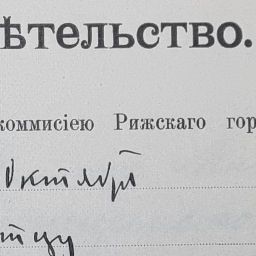 ѣтельство.
коммисіею Рижскаго гор
Октября
тцу